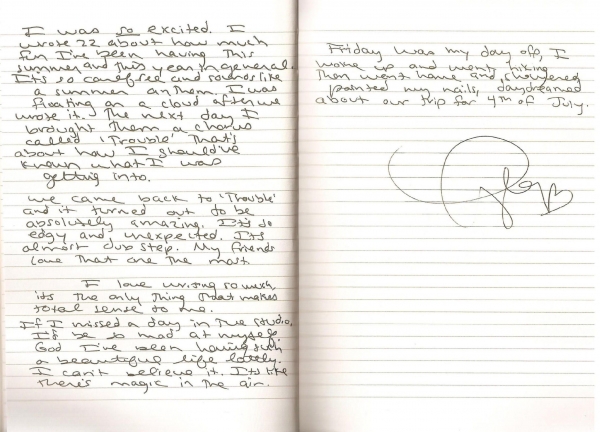 I was so excited. I
wrote 22 about how much
fun I've been having This
summer and this year in general.
It's so carefree and sounds like
a summer anthem. I was
floating on a cloud after we
wrote it. The next day I
brought Them a chorus
called 'Trouble' That's
about how I should've
known what I was
getting into.
we came back to 'Trouble'
and it turned out to be
absolutely amazing. It's so
edgy and unexpected. It's
almost dub step. My friends
love That one The most.
I love writing so much,
it's The only Thing That makes
total sense to me.
If I missed a day in The studio,
I'd be so mad at myself.
God I've been having such
a beautiful life lately.
I can't believe it. It's like
There's magic in The air.
Friday was my day off, I
woke up and went hiking
Then went home and showered
painted my nails, daydreamed
about our trip for 4th of July.